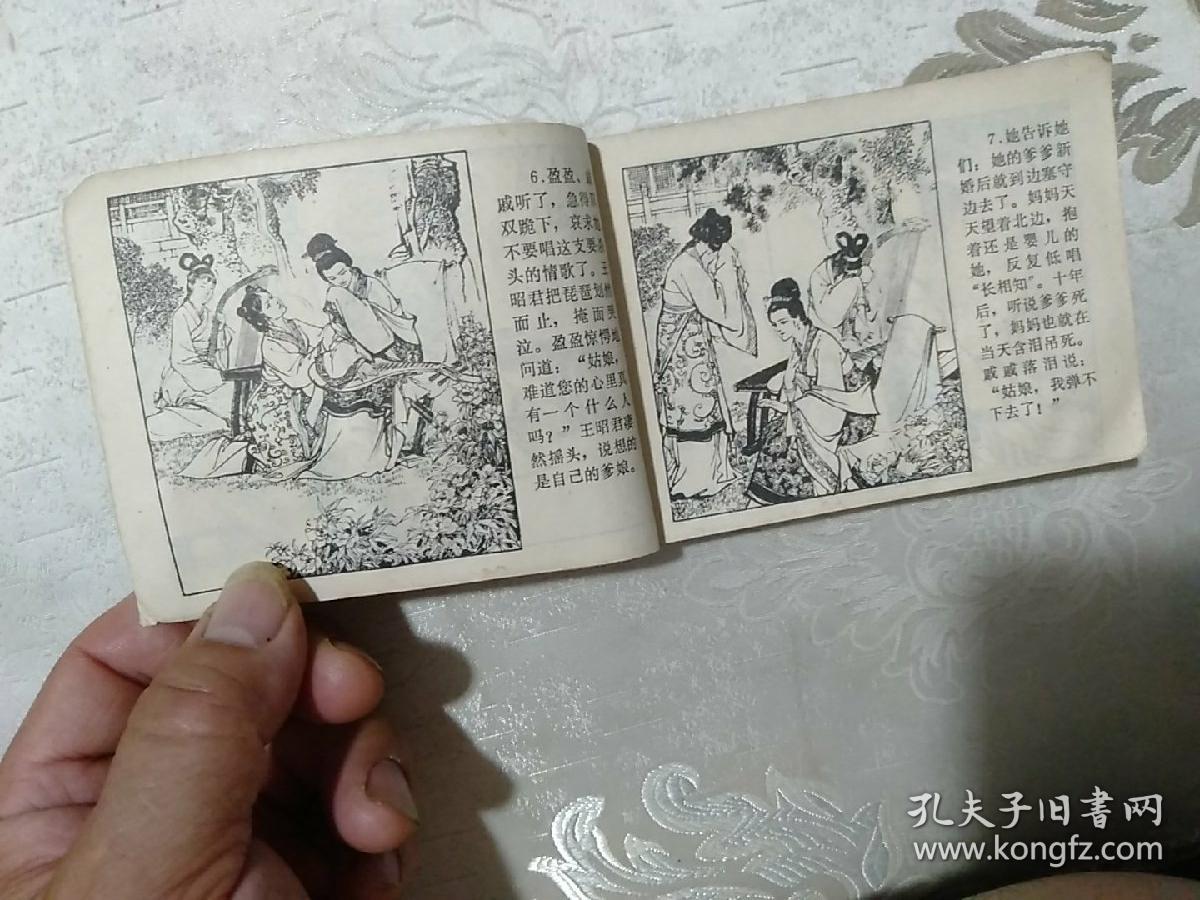 6.盈盈、
戚听了，急得
双跪下，哀求
不要唱这支要
头的情歌了。王
昭君把琵琶划然
而止，掩面哭
泣。盈盈惊愕地
问道：“姑娘，
难道您的心里真
有一个什么人
吗？”王昭君凄
然摇头，说想的
是自己的爹娘。
7.她告诉她
们：她的爹爹新
婚后就到边塞守
边去了。妈妈天
天望着北边，抱
着还是婴儿的
她，反复低唱
“长相知”。十年
后，听说爹爹死
了，妈妈也就在
当天含泪吊死。
戚戚落泪说：
“姑娘，我弹不
下去了！”
孔夫子旧書网
www.kongfz.com